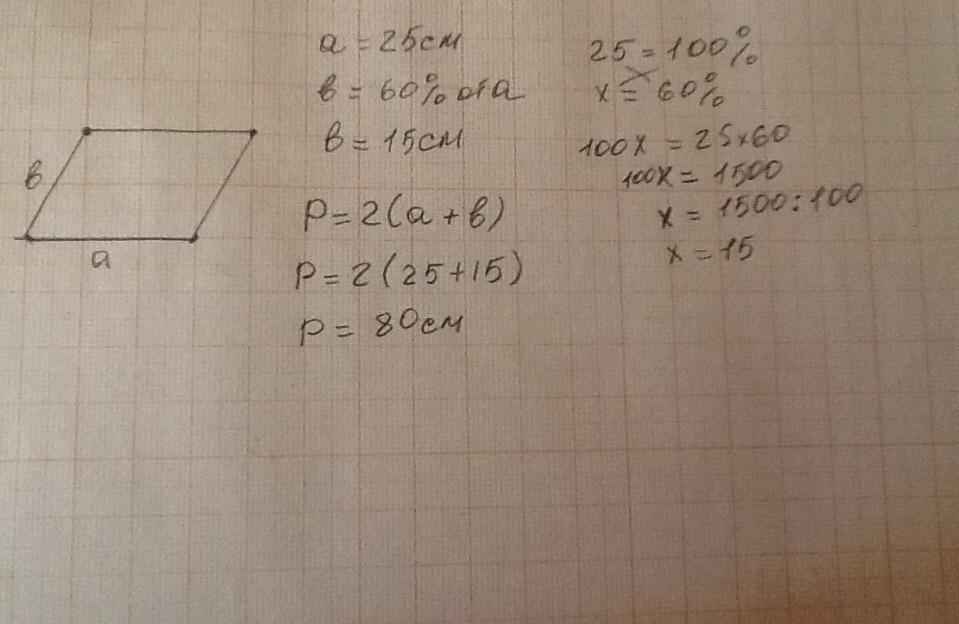 a = 25см
в = 60% от а
в = 15см
P = 2(a + в)
P = 2(25+15)
P = 80см
25 = 100%
x = 60%
100x = 25x60
100x = 1500
x = 1500:100
x = 15
в
a